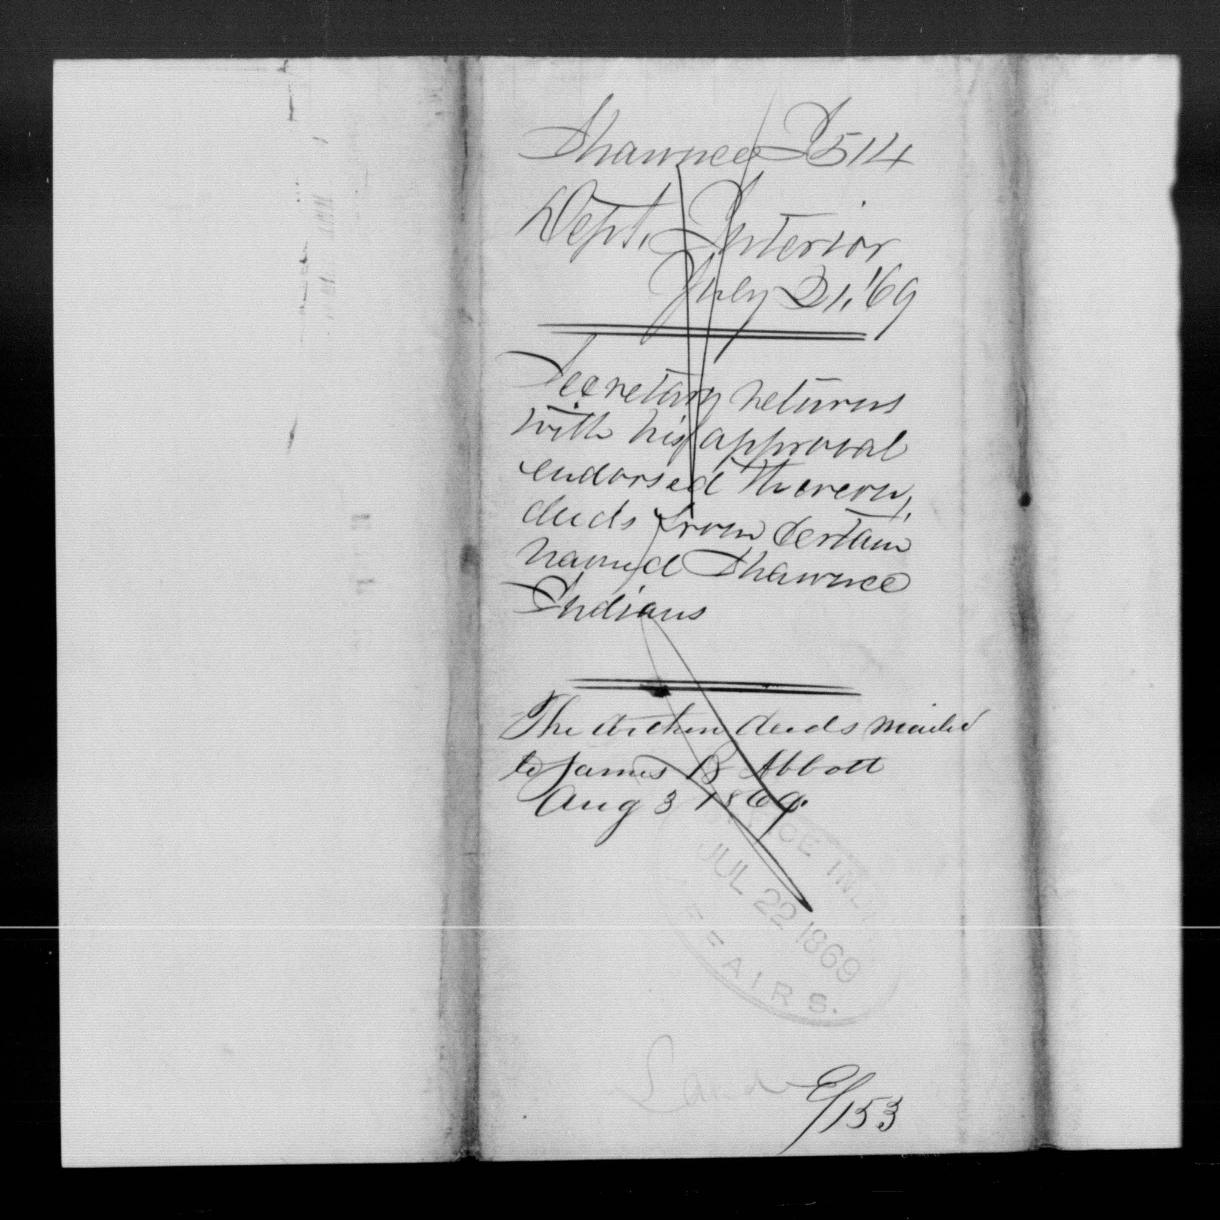 Shawnee I514
Dept. Interior
July 21, '69
Secretary returns
with his approval
endorsed thereon,
deeds from Certain
named Shawnee
Indians
The within deeds mailed
to James B Abbott
Aug 3 1869.
JUL 22 1869
Land
/153